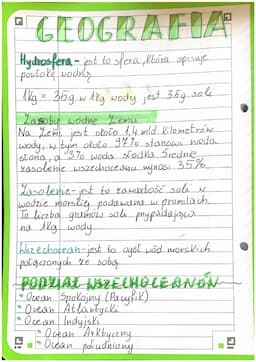 GEOGRAFIA
Hydrosfera - jest to sfera, która opisuje
powłokę wodną
1kg = 35g w 1kg wody jest 35g soli
Zasoby wodne Ziemi
Na Ziemi jest około 1,4 mld kilometrów
wody, w tym około 97% stanowi woda
słona, a 3% woda słodka. Średnie
zasolenie wszechoceanu wynosi 35‰
Zasolenie - jest to zawartość soli w
wodzie morskiej podawana w promilach.
Ta liczba gramów soli przypadająca
na 1kg wody
Wszechocean - jest to ogół wód morskich
połączonych ze sobą
PODZIAŁ WSZECHOCEANÓW
* Ocean Spokojny (Pacyfik)
* Ocean Atlantycki
* Ocean Indyjski
* Ocean Arktyczny
* Ocean południowy